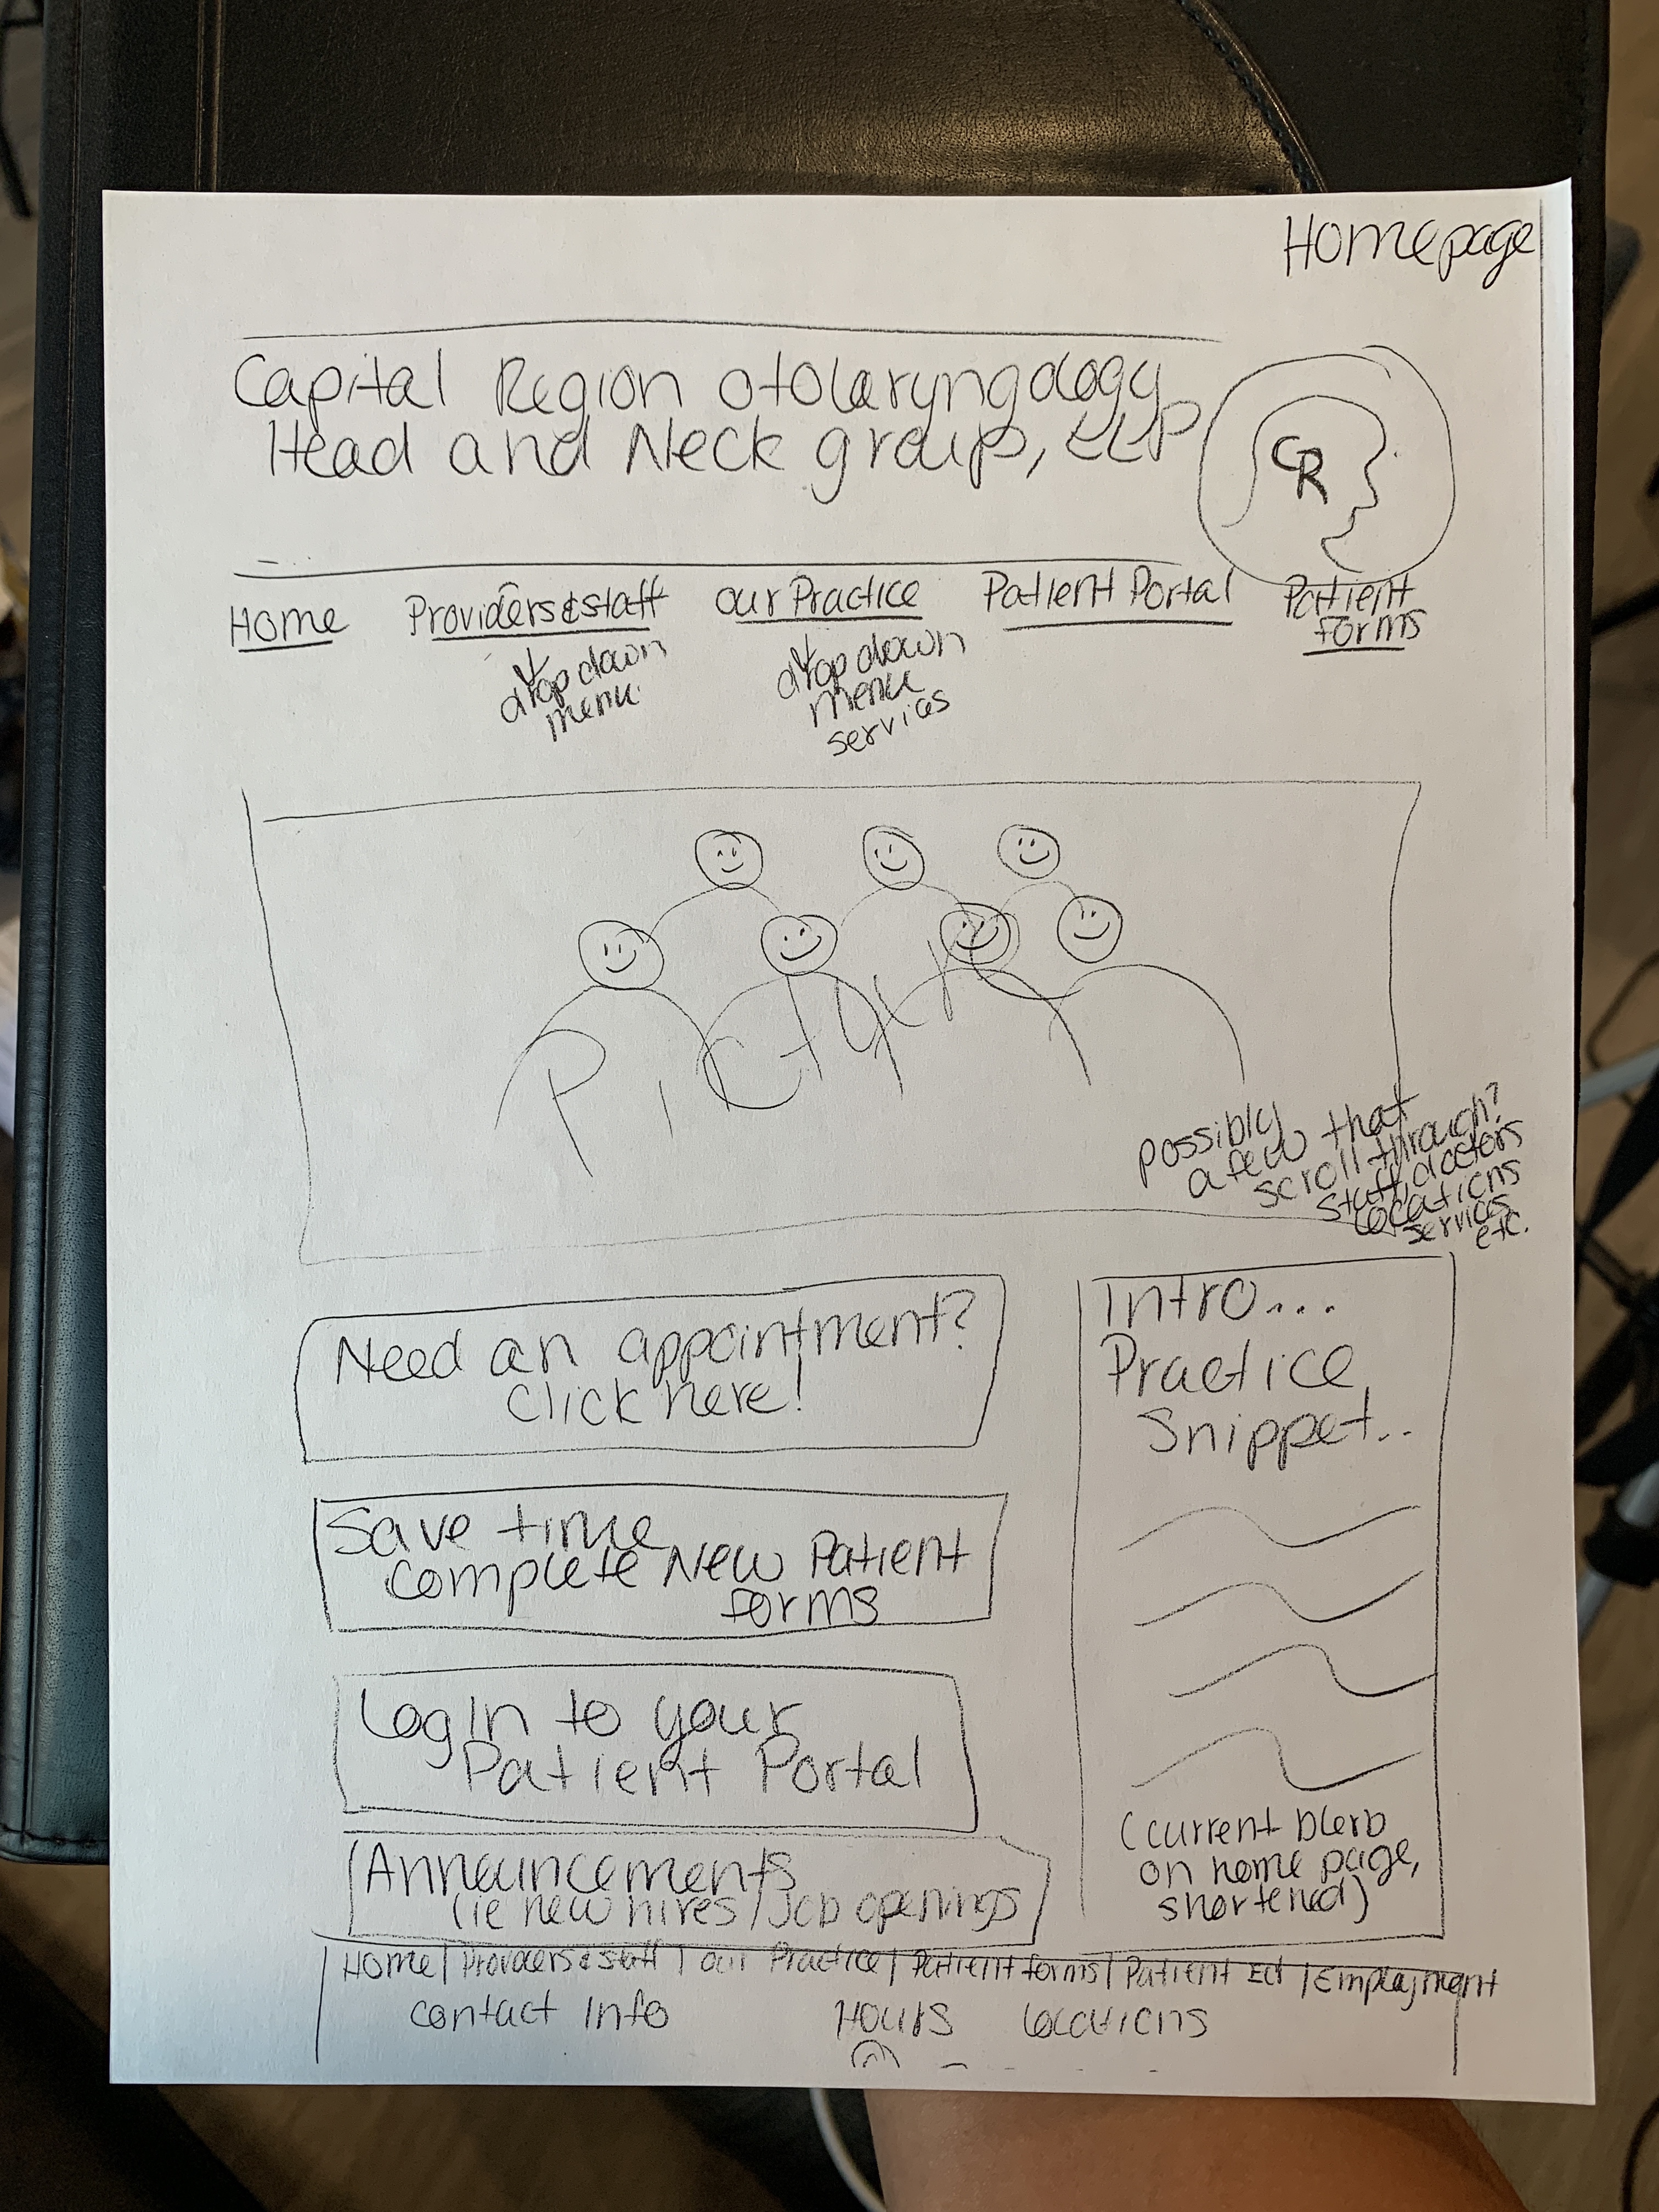 Homepage
Capital Region Otolaryngology
Head and Neck group, LLP
CR
Home Providers & staff Our Practice Patient Portal Patient forms
drop down menu
drop down menu services
Picture
possibly
a few that
scroll through?
staff, doctors
locations
services
etc.
Need an appointment?
Click here!
Save time
complete New Patient
forms
Log In to your
Patient Portal
Announcements
(ie new hires/Job openings
Intro...
Practice
Snippet..
(current blerb
on home page,
shortened)
Home | Providers & staff | Our Practice | Patient forms | Patient Ed | Employment
Contact Info Hours Locations